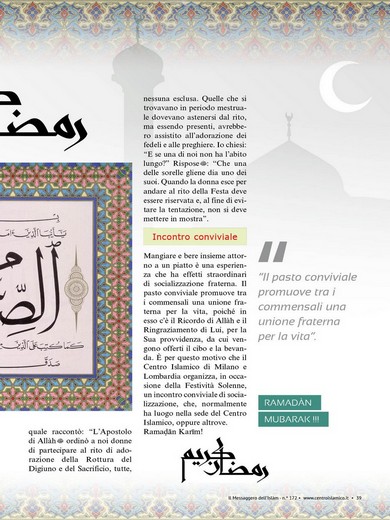 quale raccontò: “L’Apostolo
di Allàh ﷺ ordinò a noi donne
di partecipare al rito di ado-
razione della Rottura del
Digiuno e del Sacrificio, tutte,
nessuna esclusa. Quelle che si
trovavano in periodo mestrua-
le dovevano astenersi dal rito,
ma essendo presenti, avrebbe-
ro assistito all’adorazione dei
fedeli e alle preghiere. Io chiesi:
“E se una di noi non ha l’abito
lungo?” Rispose ﷺ: “Che una
delle sorelle gliene dia uno dei
suoi. Quando la donna esce per
andare al rito della Festa deve
essere riservata e, al fine di evi-
tare la tentazione, non si deve
mettere in mostra”.
Incontro conviviale
Mangiare e bere insieme attor-
no a un piatto è una esperien-
za che ha effetti straordinari
di socializzazione fraterna. Il
pasto conviviale promuove tra
i commensali una unione fra-
terna per la vita, poiché in
esso c’è il Ricordo di Allàh e il
Ringraziamento di Lui, per la
Sua provvidenza, da cui ven-
gono offerti il cibo e la bevan-
da. È per questo motivo che il
Centro Islamico di Milano e
Lombardia organizza, in occa-
sione della Festività Solenne,
un incontro conviviale di socia-
lizzazione, che, normalmente
ha luogo nella sede del Centro
Islamico, oppure altrove.
Ramaḍān Karīm!
رمضان كريم
“Il pasto conviviale
promuove tra i
commensali una
unione fraterna
per la vita”.
RAMADÀN
MUBARAK !!!
Il Messaggero dell’Islàm - n.° 172 • www.centroislamico.it • 39